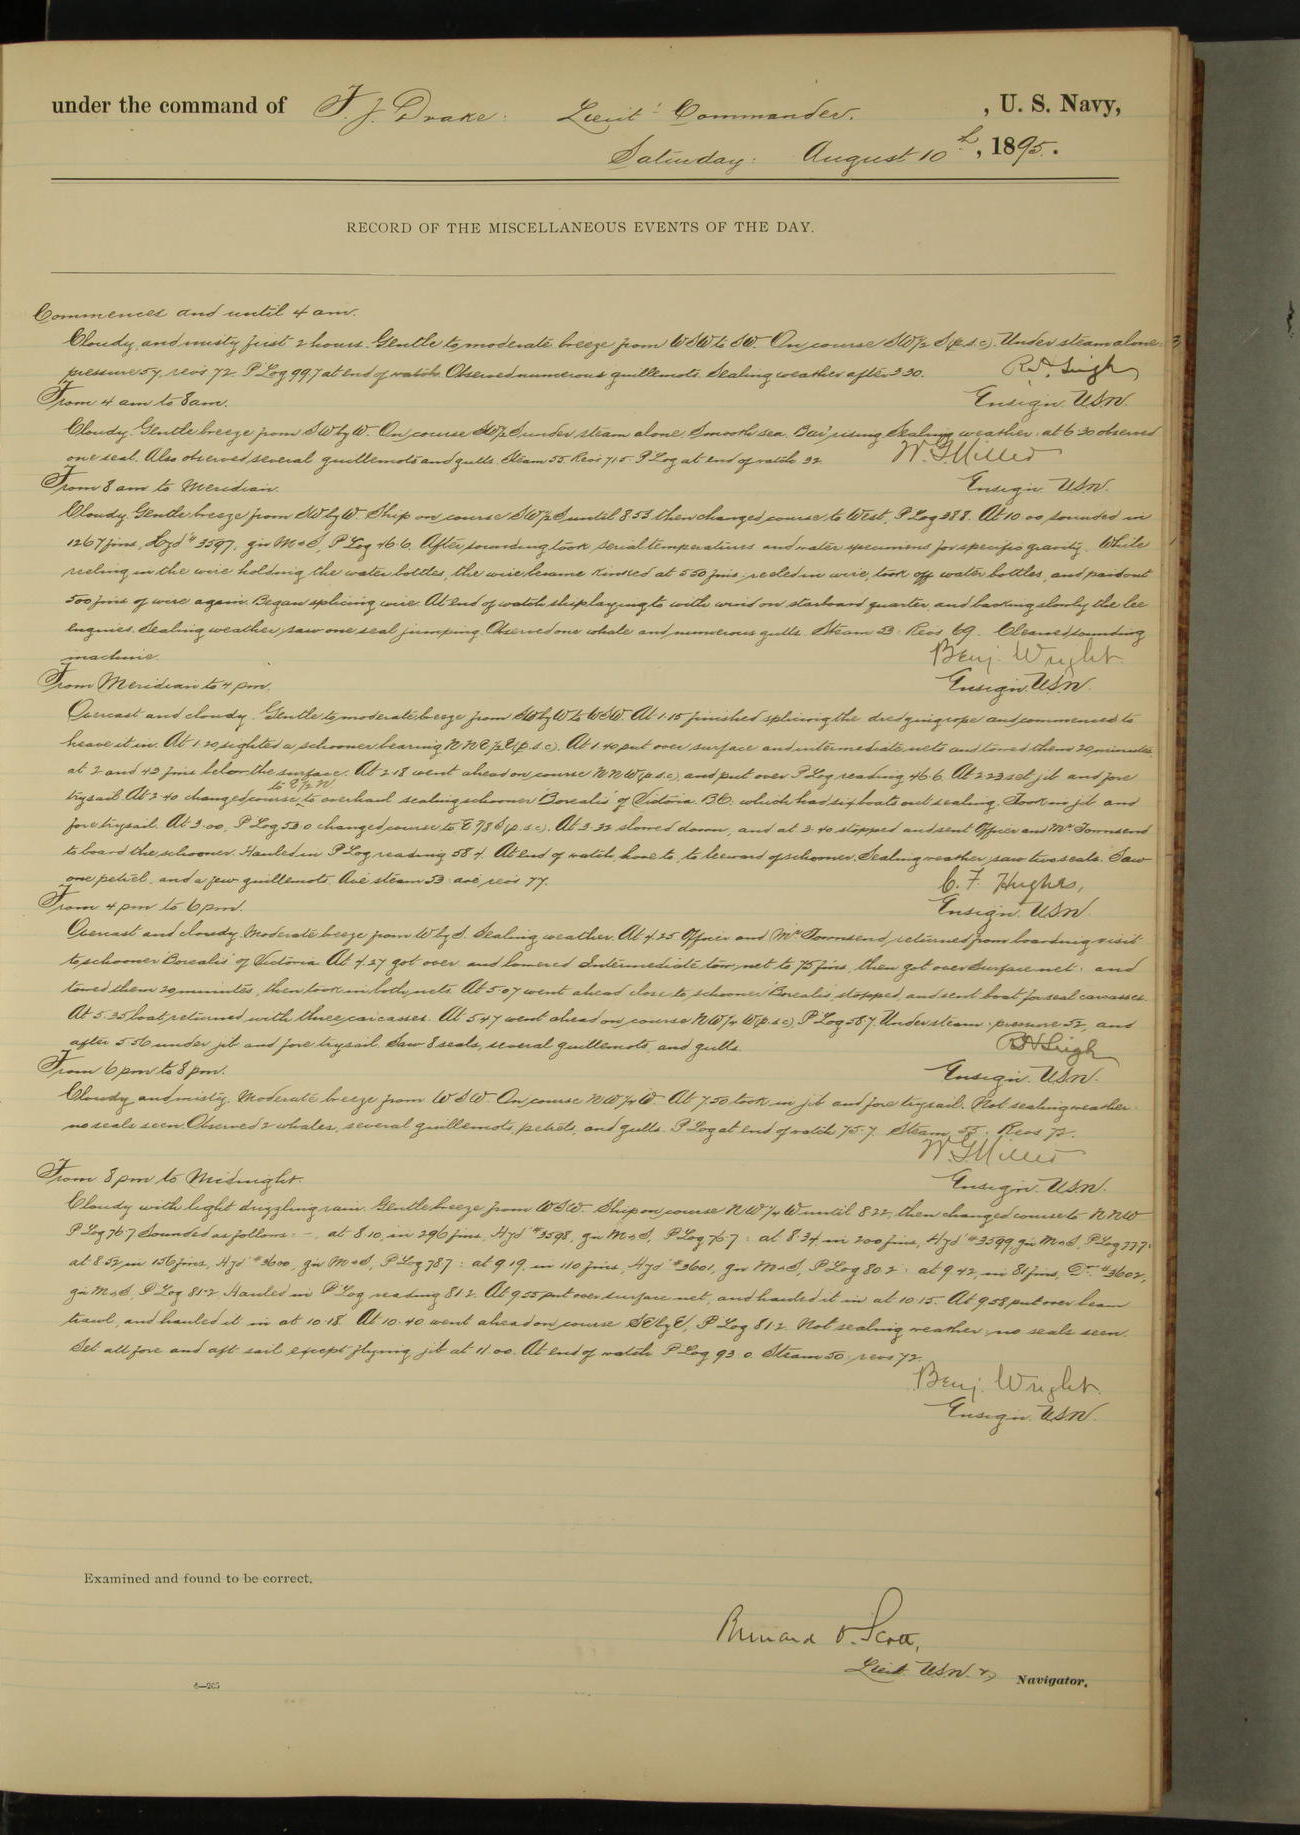 under the command of F. J. Drake: Lieut: Commander. , U. S. Navy,
Saturday: August 10th, 1895.
RECORD OF THE MISCELLANEOUS EVENTS OF THE DAY.
Commences and until 4 am.
Cloudy, and misty first 2 hours. Gentle to moderate breeze from WSW to SW. On course SW½S (p.s.c). Under steam alone:
pressure 57, revs 72. P Log 99.7 at end of watch. Observed numerous guillemots. Sealing weather after 3 30.
Ensign. USN.
From 4 am to 8 am.
Cloudy. Gentle breeze from SW by W. On course SW½S under steam alone. Smooth sea. Bar' rising. Sealing weather: at 6 30 observed
one seal. Also observed several guillemots and gulls. Steam 55. Revs 71.5 P Log at end of watch 32
W. G. Miller
Ensign. USN.
From 8 am to Meridian.
Cloudy. Gentle breeze from SW by W. Ship on course SW½S until 8 53 then changed course to West, P Log 38 8. At 10 00 sounded in
1267 fms, Hyd'c 3597, gn M & S, P Log 46 6. After sounding took serial temperatures and water specimens for specific gravity. While
reeling in the wire holding the water bottles, the wire became kinked at 550 fms; reeled in wire, took off water bottles, and paid out
500 fms of wire again. Began splicing wire. At end of watch ship laying to with wind on starboard quarter, and backing slowly the lee
engines. Sealing weather; saw one seal jumping. Observed one whale and numerous gulls. Steam 53: Revs 69. Cleaned sounding
machine.
Benj. Wright.
Ensign. USN.
From Meridian to 4 pm.
Overcast and cloudy. Gentle to moderate breeze from SW by W to WSW. At 1 15 finished splicing the dredging rope and commenced to
heave it in. At 1 20 sighted a schooner bearing NNE½E (p.s.c). At 1.40 put over surface and intermediate nets and towed them 20 minutes
at 2 and 43 fms below the surface. At 2 18 went ahead on course NNW (p.s.c) and put over P Log reading 46 6. At 2 23 set jib and fore
to E½N
trysail. At 2 40 changed course, to overhaul sealing schooner "Borealis" of Victoria. B.C. which had six boats out sealing. Took in jib and
fore trysail. At 3.00, P Log 53 0 changed course to E⅞S (p.s.c). At 3 32 slowed down, and at 3.40 stopped and sent Officer and Mr. Townsend
to board the schooner. Hauled in P Log reading 58 4. At end of watch, hove to, to leeward of schooner. Sealing weather; saw two seals. Saw
one petrel, and a few guillemots. Ave steam 53: ave revs 77.
C. F. Hughes,
Ensign. USN.
From 4 pm to 6 pm.
Overcast and cloudy. Moderate breeze from W by S. Sealing weather. At 4.25 Officer and Mr Townsend, returned from boarding visit
to schooner "Borealis" of Victoria. At 4.27 got over and lowered Intermediate tow net to 75 fms, then got over surface net: and
towed them 20 minutes, then took in both nets. At 5.07 went ahead close to schooner "Borealis," stopped, and sent boat for seal carcasses.
At 5.35 boat returned with three carcasses. At 5 47 went ahead on course NW¼W (p.s.c), P Log 58.7. Under steam: pressure 52, and
after 5 56 under jib and fore trysail. Saw 8 seals, several guillemots, and gulls.
Ensign. USN.
From 6 pm to 8 pm.
Cloudy and misty. Moderate breeze from WSW. On course NW¼W. At 7 50 took in jib and fore trysail. Not sealing weather:
no seals seen. Observed 2 whales, several guillemots, petrels, and gulls. P Log at end of watch 75.7. Steam 55: Revs 72.
W. G. Miller
Ensign. USN.
From 8 pm to Midnight.
Cloudy with light drizzling rain. Gentle breeze from WSW. Ship on course NW¼W until 8 22, then changed course to NNW
P Log 76 7 Sounded as follows: – at 8.10, in 296 fms, Hyd' # 3598, gn M & S, P Log 76.7: at 8.34 in 200 fms, Hyd' # 3599 gn M & S, P Log 77.7:
at 8.52 in 156 fms, Hyd' # 3600, gn M & S, P Log 78 7: at 9 19, in 110 fms, Hyd' # 3601, gn M & S, P Log 80 2: at 9 42, in 81 fms, Do. # 3602,
gn M & S, P Log 81.2. Hauled in P Log reading 81 2. At 9 55 put over surface net, and hauled it in at 10 15. At 9 58 put over beam
trawl, and hauled it in at 10 18. At 10.40 went ahead on course SE by E, P Log 81.2. Not sealing weather; no seals seen.
Set all fore and aft sail except flying jib at 11 00. At end of watch P Log 93 0. Steam 50: revs 72.
Benj. Wright.
Ensign. USN.
Examined and found to be correct.
Bernard O. Scott,
Lieut. USN. & Navigator.